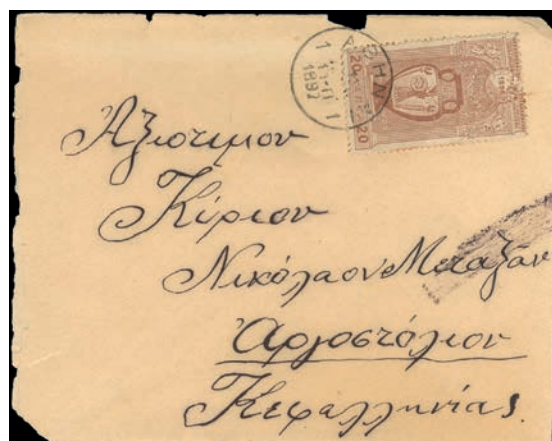 ΑΘΗΝ
1 1
1897
20 20
Ἀξιότιμον
Κύριον
Νικόλαον Μεταξᾶν
Ἀργοστόλιον
Κεφαλληνίας